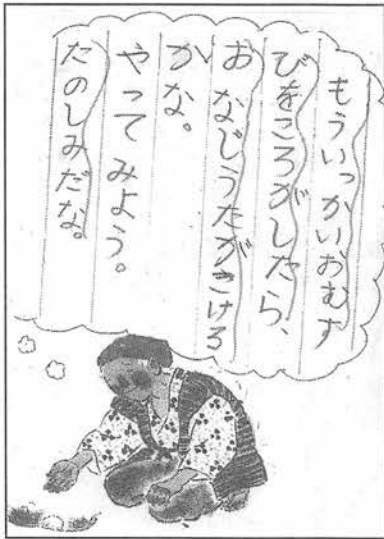 もういっかいおむす
びをころがしたら、
おなじうたがきける
かな。
やってみよう。
たのしみだな。